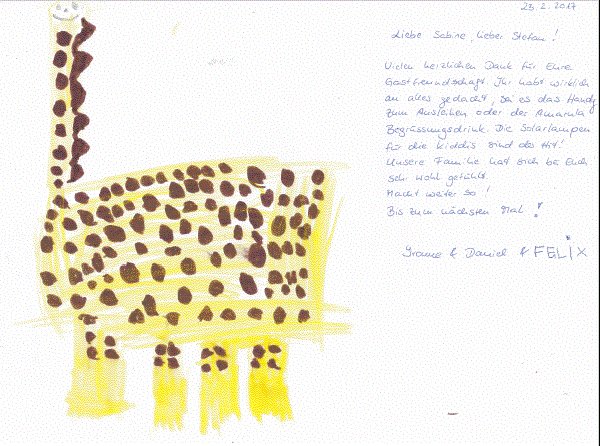 23.2.2017
Liebe Sabine, lieber Stefan!
Vielen herzlichen Dank für Eure
Gastfreundschaft. Ihr habt wirklich
an alles gedacht, sei es das Handy
zum Ausleihen oder der Amarula
Begrüssungsdrink. Die Solarlampen
für die Kiddis sind der Hit!
Unsere Familie hat sich bei Euch
sehr wohl gefühlt.
Macht weiter so!
Bis zum nächsten Mal!
& Daniel & FELIX